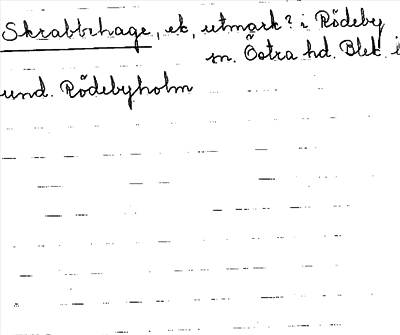 Skrabbehage, ek, utmark? i Rödeby
sn. Östra hd. Blek. i
und. Rödebyholm